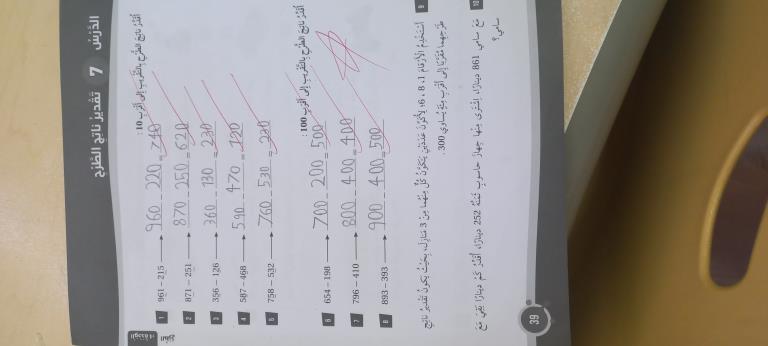 الدَّرْسُ 7 تَقْديرُ ناتِجِ الطَّرْحِ
الوحدة 1
الطرح
أُقَدِّرُ ناتِجَ الطَّرْحِ بِالتَّقْريبِ إلى أَقْرَبِ 10:
1 961 – 215 → 960 - 220 = 740
2 871 – 251 → 870 - 250 = 620
3 356 – 126 → 360 - 130 = 230
4 587 – 468 → 590 - 470 = 120
5 758 – 532 → 760 - 530 = 230
أُقَدِّرُ ناتِجَ الطَّرْحِ بِالتَّقْريبِ إلى أَقْرَبِ 100:
6 654 – 198 → 700 - 200 = 500
7 796 – 410 → 800 - 400 = 400
8 893 – 393 → 900 - 400 = 500
9 أَسْتَخْدِمُ الْأَرْقامَ 1، 8، 6، لِأُكَوِّنَ عَدَدَيْنِ يَتَكَوَّنُ كُلٌّ مِنْهُما مِنْ 3 مَنازِلَ، بِحَيْثُ يَكونُ تَقْديرُ ناتِجِ
طَرْحِهِما مُقَرَّبًا إلى أَقْرَبِ مِئَةٍ يُساوي 300.
10 مَعَ سامي 861 دينارًا، اِشْتَرى مِنْها جِهازَ حاسوبٍ ثَمَنُهُ 252 دينارًا، أُقَدِّرُ كَمْ دينارًا بَقِيَ مَعَ
سامي؟
39